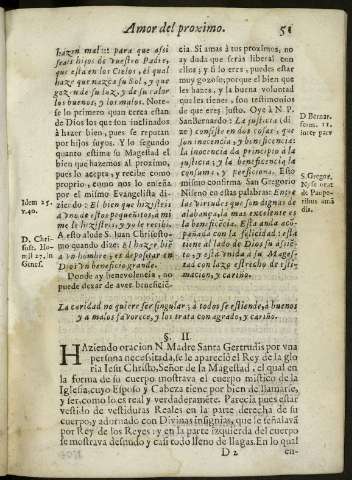 Amor del proximo. 51
hazen mal: para que assi
seais hijos de vuestro Padre,
que esta en los Cielos, el qual
haze que nazca su Sol, y que
gozen de su luz, y de su calor
los buenos, y los malos. Note-
se lo primero quan cerca estan
de Dios los que son inclinados
à hazer bien, pues se reputan
por hijos suyos. Y lo segundo
quanto estima su Magestad el
bien que hazemos al proximo,
pues lo acepta, y recibe como
proprio, como nos lo enseña
por el mismo Evangelista di-
ziendo: El bien que hizisteis
à vno de estos pequeñitos, à mi
me lo hizisteis, y yo le recibo.
A esto alude S. Iuan Chrisosto-
mo quando dize: El hazer bien
à vn hombre, es depositar en
Dios vn beneficio grande.
Donde ay benevolencia, no
puede dexar de aver beneficẽ-
Idem 25.
v. 40.
D. Chri-
sost. Ho-
mil 27. in
Genes.
cia. Si amas à tus proximos, no
ay duda que seràs liberal con
ellos; y si lo eres, puedes estar
muy gozoso; porque el bien que
les hazes, y la buena voluntad
que les tienes, son testimonios
de que eres Justo. Oye à N. P.
San Bernardo: La justicia (di
ze) consiste en dos cosas, que
son inocencia, y beneficencia:
La inocencia dà principio à la
justicia, y la beneficencia la
consuma, y perficiona. Esto
mismo confirma San Gregorio
Niseno en estas palabras: Entre
las virtudes que son dignas de
alabança, la mas excelente es
la beneficencia. Esta anda acõ-
pañada con la felicidad: esta
tiene al lado de Dios su assiẽ-
to, y esta vnida à su Mages-
tad con lazo estrecho de esti-
macion, y cariño.
D. Bernar.
serm. 11.
inter parv
S. Gregor.
Nyse orat
de Paupe-
ribus amã
dis.
La caridad no quiere ser singular, à todos se estiende, à buenos
y à malos favorece, y los trata con agrado, y cariño.
§. II
HAziendo oracion N. Madre Santa Gertrudis por vna
persona necessitada, se le apareciò el Rey de la glo
ria Iesu Christo, Señor de la Magestad, el qual en
la forma de su cuerpo mostrava el cuerpo mistico de la
Iglesia, cuyo Esposo y Cabeza tiene por bien de llamarse,
y ser, como lo es real y verdaderamẽte. Parecia pues estar
vestido de vestiduras Reales en la parte derecha de su
cuerpo, y adornado con Divinas insignias, que le señalavã
por Rey de los Reyes: y en la parte izquierda del cuerpo
se mostrava desnudo y casi todo lleno de llagas. En lo qual
D 2 en-